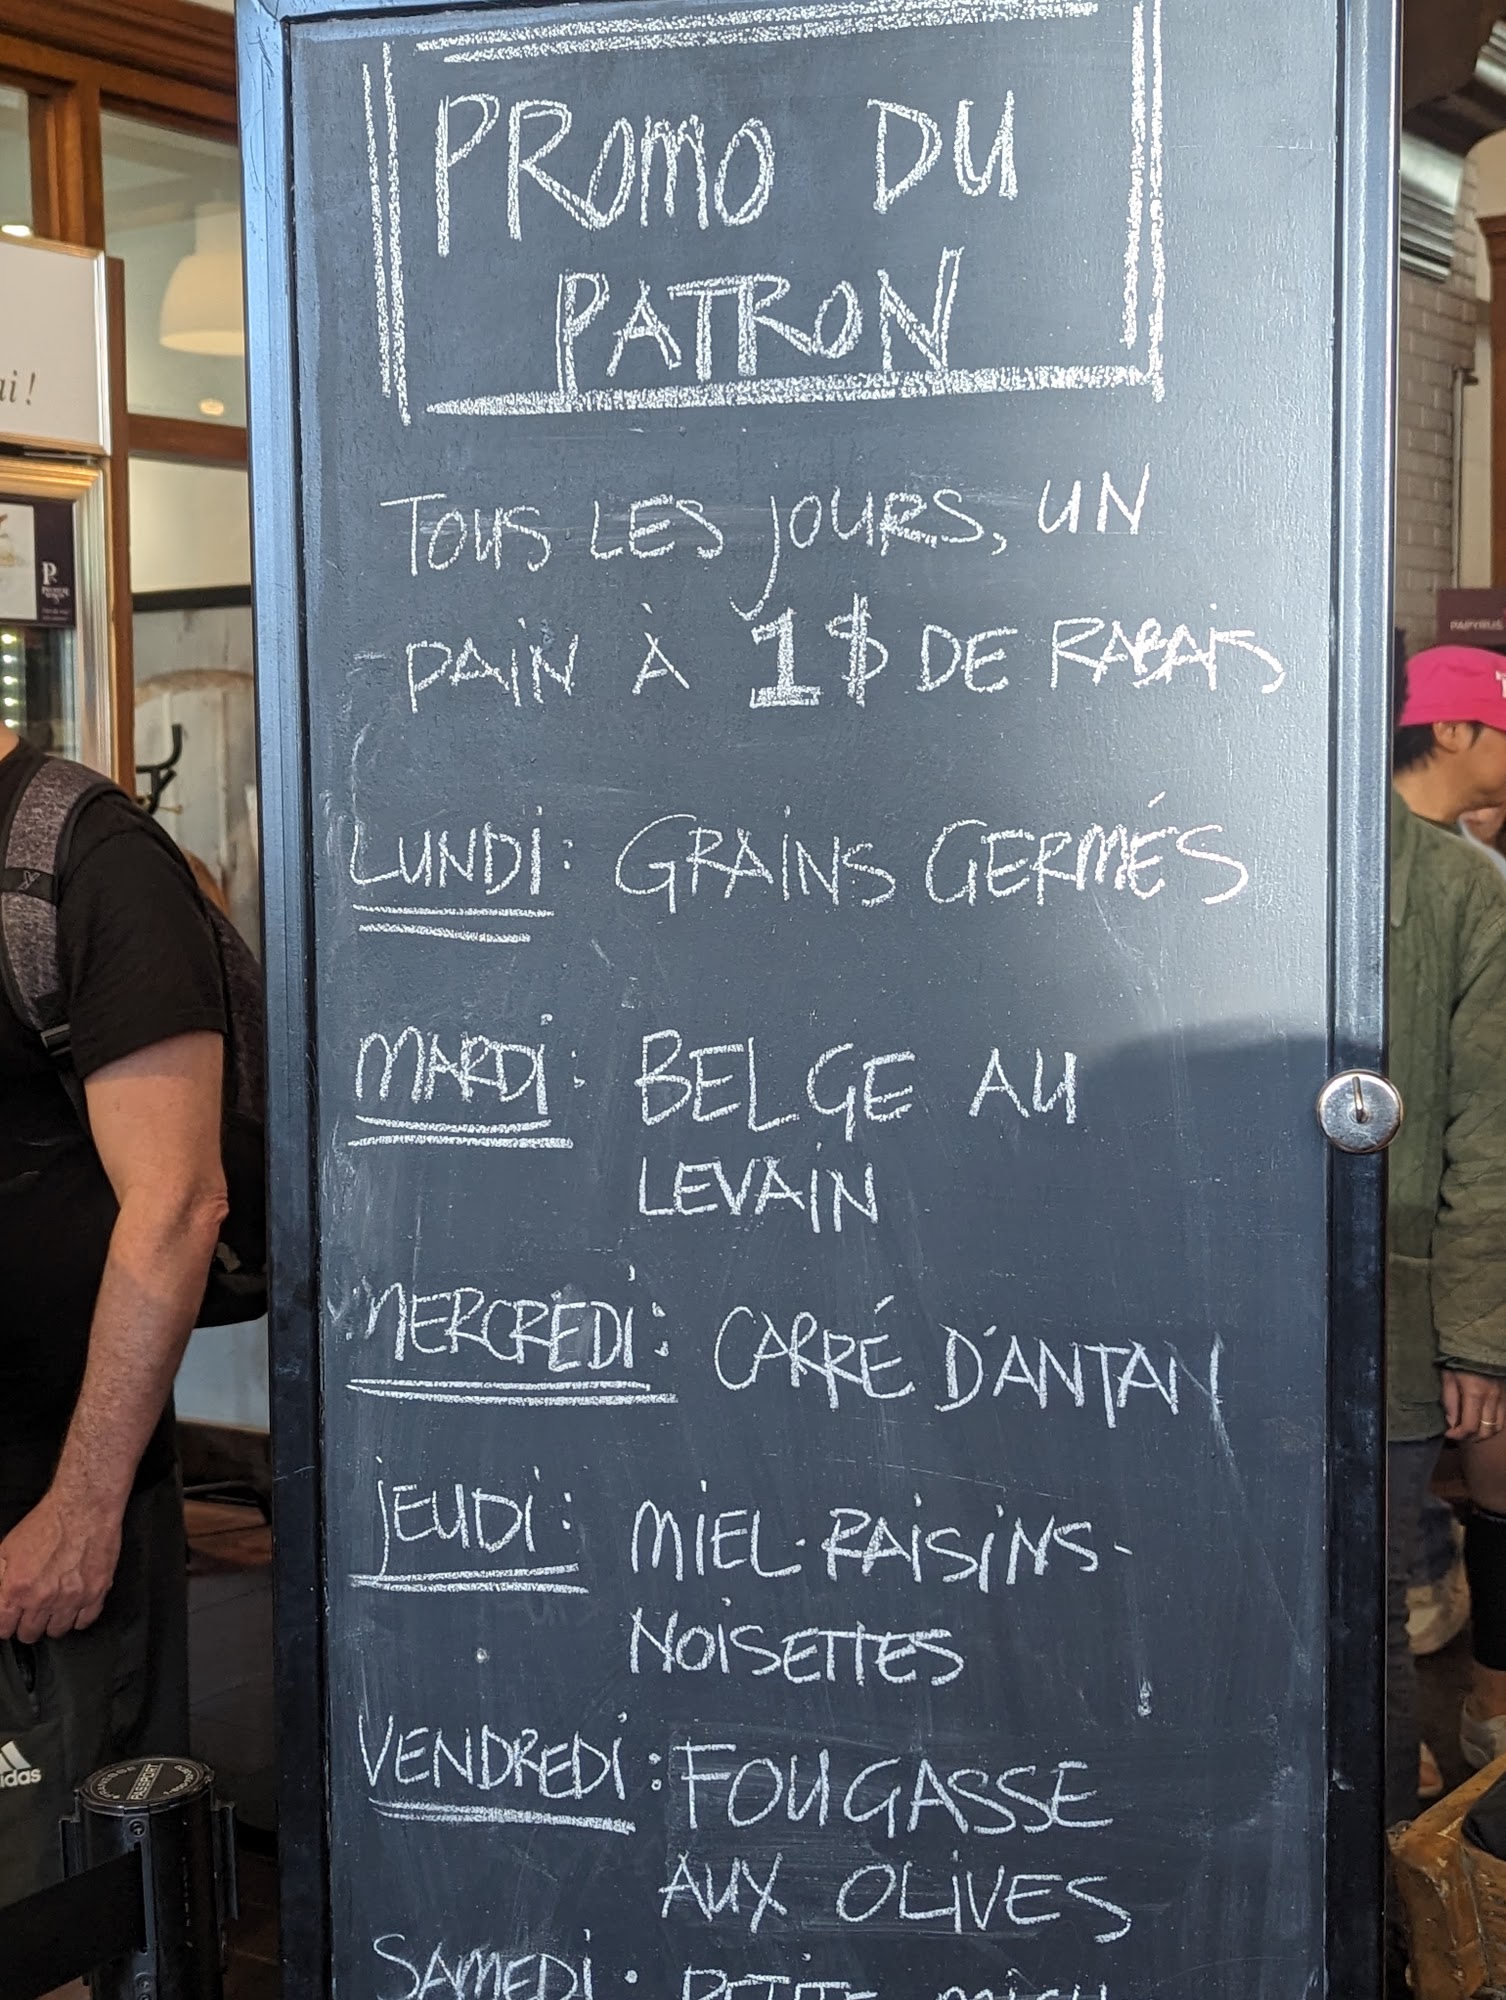 PROMO DU
PATRON
TOUS LES JOURS, UN
PAIN À 1$ DE RABAIS
LUNDI : GRAINS GERMÉS
MARDI : BELGE AU
LEVAIN
MERCREDI : CARRÉ D'ANTAN
JEUDI : MIEL-RAISINS-
NOISETTES
VENDREDI : FOUGASSE
AUX OLIVES
SAMEDI :
ai !
P
PAPYRUS
adidas